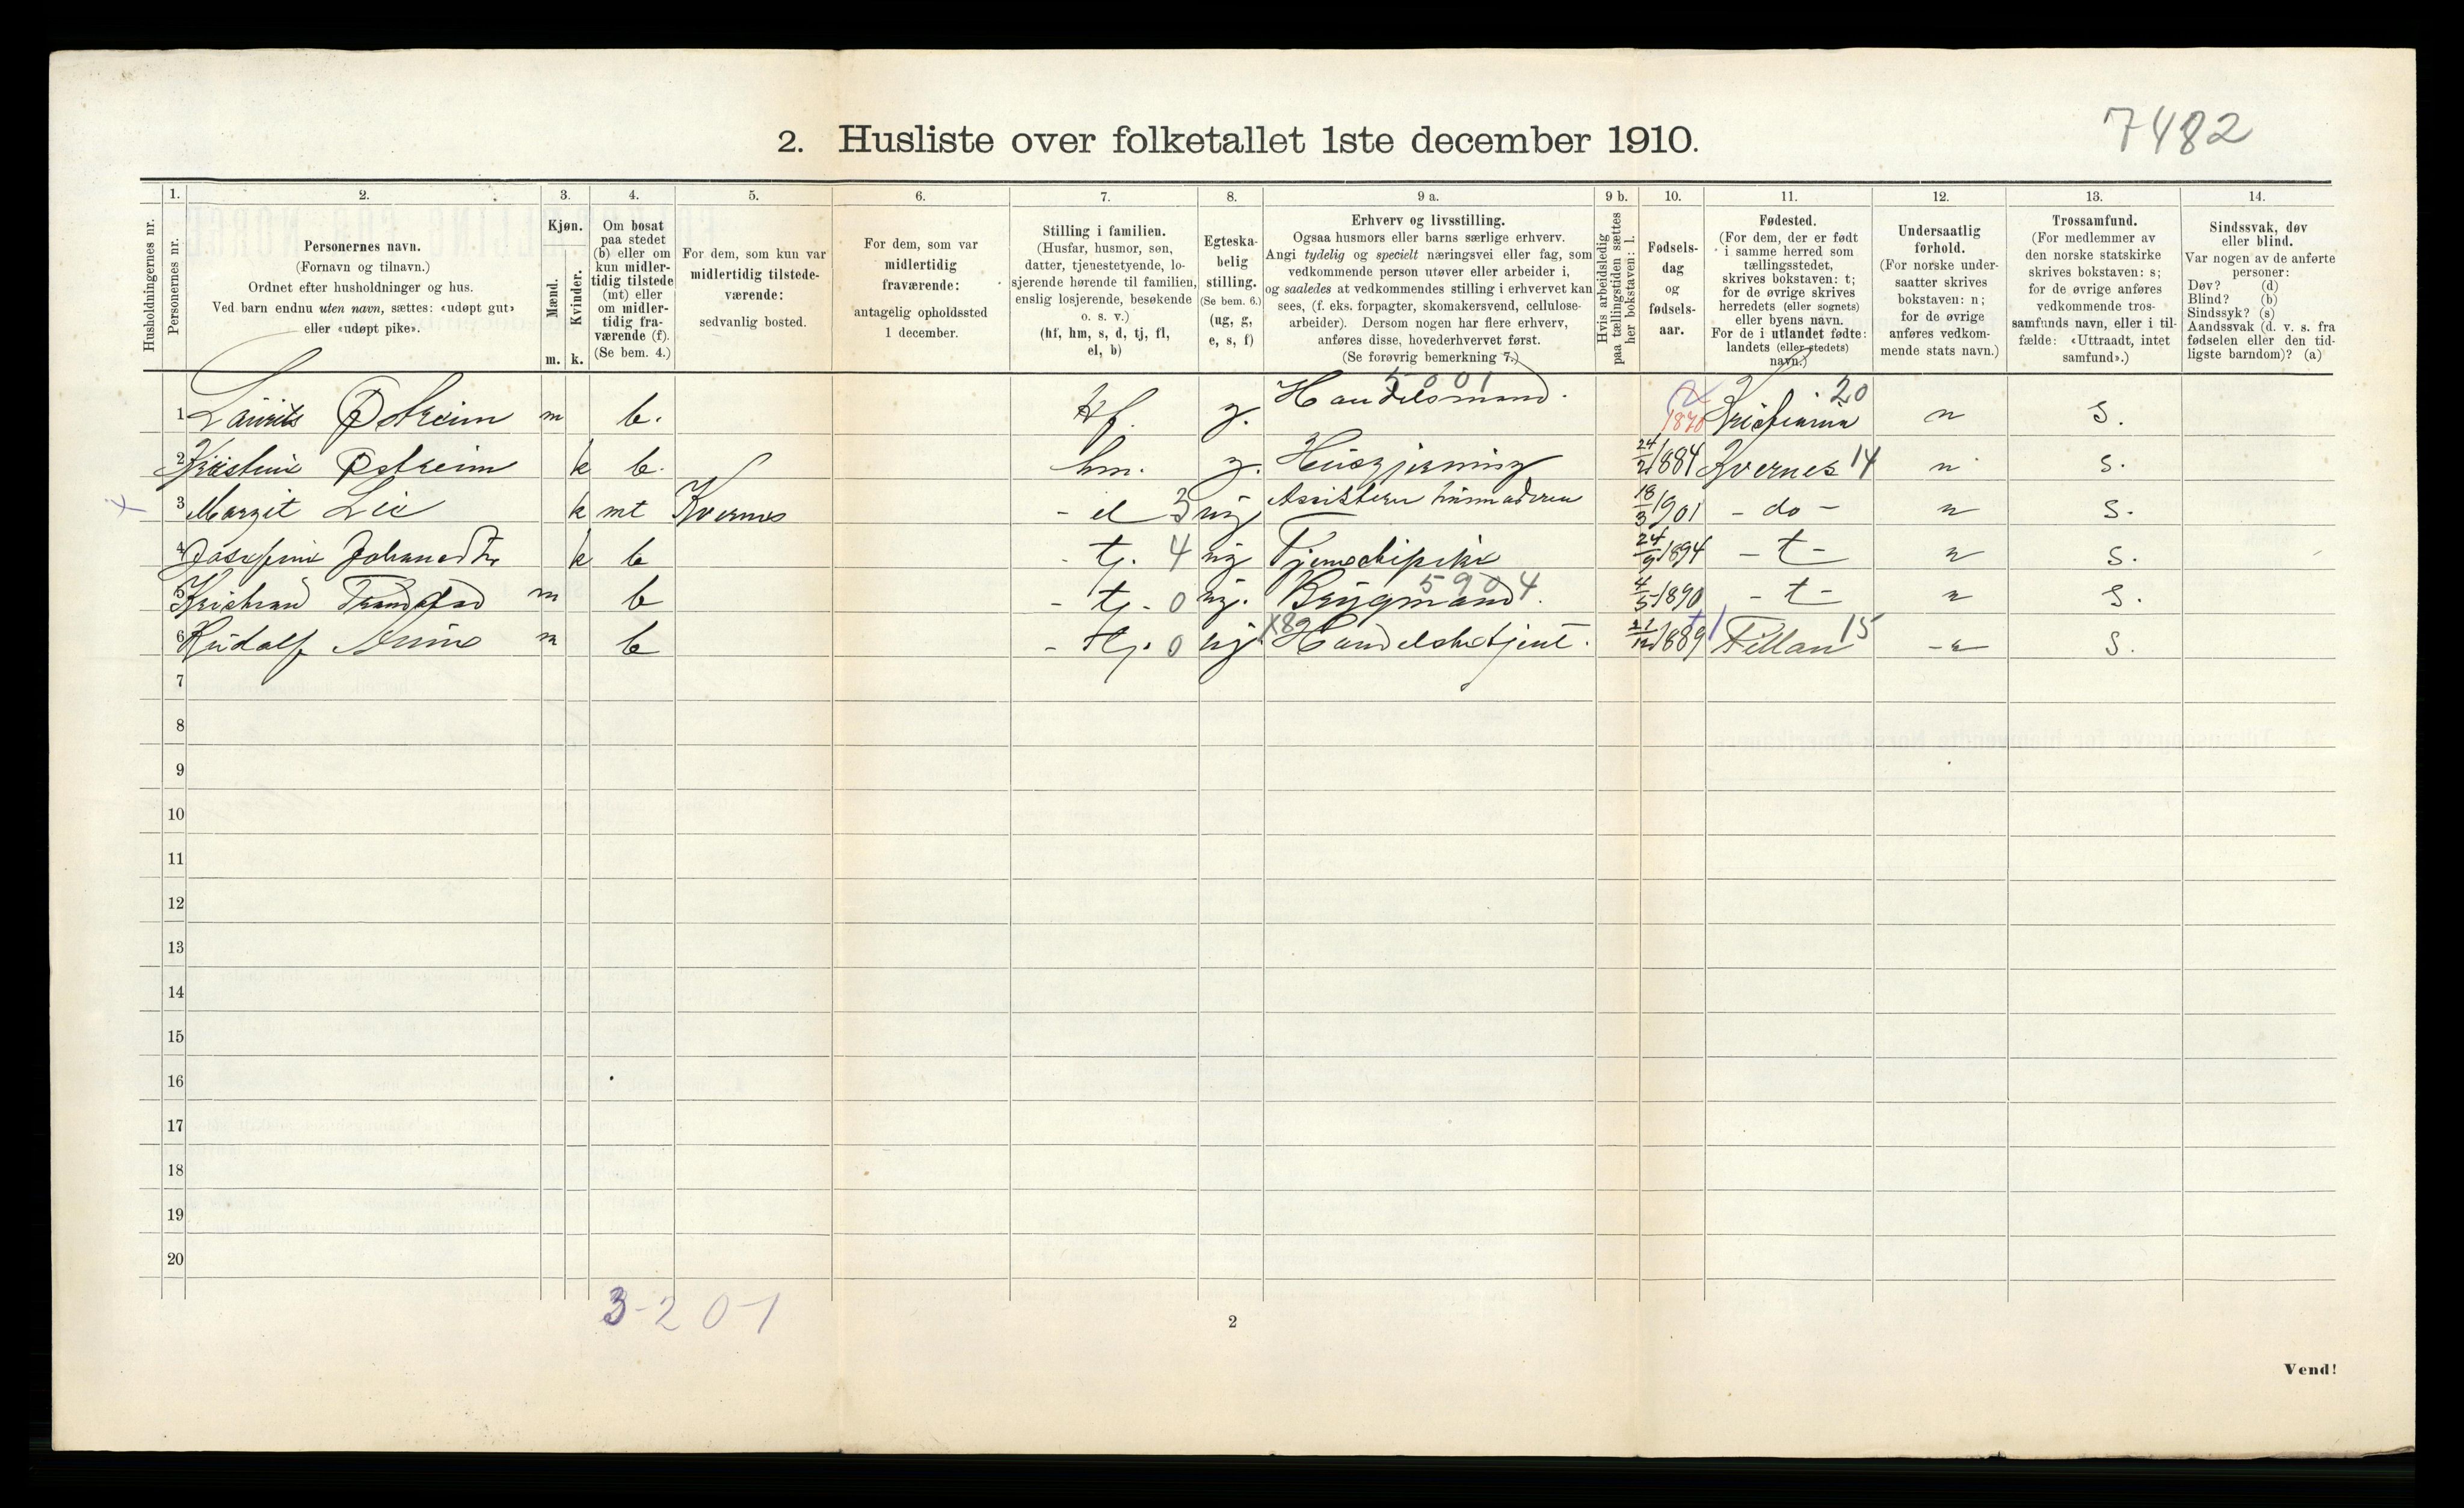 7482
2. Husliste over folketallet 1ste december 1910.
Husholdningernes nr.
1.
Personernes nr.
2.
Personernes navn.
(Fornavn og tilnavn.)
Ordnet efter husholdninger og hus.
Ved barn endnu uten navn, sættes: «udøpt gut»
eller «udøpt pike».
3.
Kjøn.
Mænd.
Kvinder.
m. k.
4.
Om bosat
paa stedet
(b) eller om
kun midler-
tidig tilstede
(mt) eller
om midler-
tidig fra-
værende (f).
(Se bem. 4.)
5.
For dem, som kun var
midlertidig tilstede-
værende:
sedvanlig bosted.
6.
For dem, som var
midlertidig
fraværende:
antagelig opholdssted
1 december.
7.
Stilling i familien.
(Husfar, husmor, søn,
datter, tjenestetyende, lo-
sjerende hørende til familien,
enslig losjerende, besøkende
o. s. v.)
(hf, hm, s, d, tj, fl,
el, b)
8.
Egteska-
belig
stilling.
(Se bem. 6.)
(ug, g,
e, s, f)
9 a.
Erhverv og livsstilling.
Ogsaa husmors eller barns særlige erhverv.
Angi tydelig og specielt næringsvei eller fag, som
vedkommende person utøver eller arbeider i,
og saaledes at vedkommendes stilling i erhvervet kan
sees, (f. eks. forpagter, skomakersvend, cellulose-
arbeider). Dersom nogen har flere erhverv,
anføres disse, hovederhvervet først.
(Se forøvrig bemerkning 7.)
9 b.
Hvis arbeidsledig
paa tællingstiden sættes
her bokstaven: l.
10.
Fødsels-
dag
og
fødsels-
aar.
11.
Fødested.
(For dem, der er født
i samme herred som
tællingsstedet,
skrives bokstaven: t;
for de øvrige skrives
herredets (eller sognets)
eller byens navn.
For de i utlandet fødte:
landets (eller stedets)
navn.)
12.
Undersaatlig
forhold.
(For norske under-
saatter skrives
bokstaven: n;
for de øvrige
anføres vedkom-
mende stats navn.)
13.
Trossamfund.
(For medlemmer av
den norske statskirke
skrives bokstaven: s;
for de øvrige anføres
vedkommende tros-
samfunds navn, eller i til-
fælde: «Uttraadt, intet
samfund».)
14.
Sindssvak, døv
eller blind.
Var nogen av de anførte
personer:
Døv? (d)
Blind? (b)
Sindssyk? (s)
Aandssvak (d. v. s. fra
fødselen eller den tid-
ligste barndom)? (a)
5001 20
1 Laurits Østreim m b. hf. g. Handelsmand. 1870 Kristiania n S.
2 Kristine Østreim k b. hm. g. Husgjerning 24/2 1884 Kvernes 14 n s.
3 Margit Lie k mt Kvernes - el 3 ug Assisterer husmoderen 18/3 1901 - do - n S.
4 Josefine k b - tj. 4 ug Tjenestepike 24/9 1894 - t - n S.
5904
5 Kristian m b - tj - 0 ug. Bryggmand. 4/5 1890 - t - n S.
6 Rudolf m b - tj. 0 ug. Handelsbetjent. 21/12 1889 Fillan 15 - n S.
7
8
9
10
11
12
13
14
15
16
17
18
19
20
3-2 0-1
2
Vend!